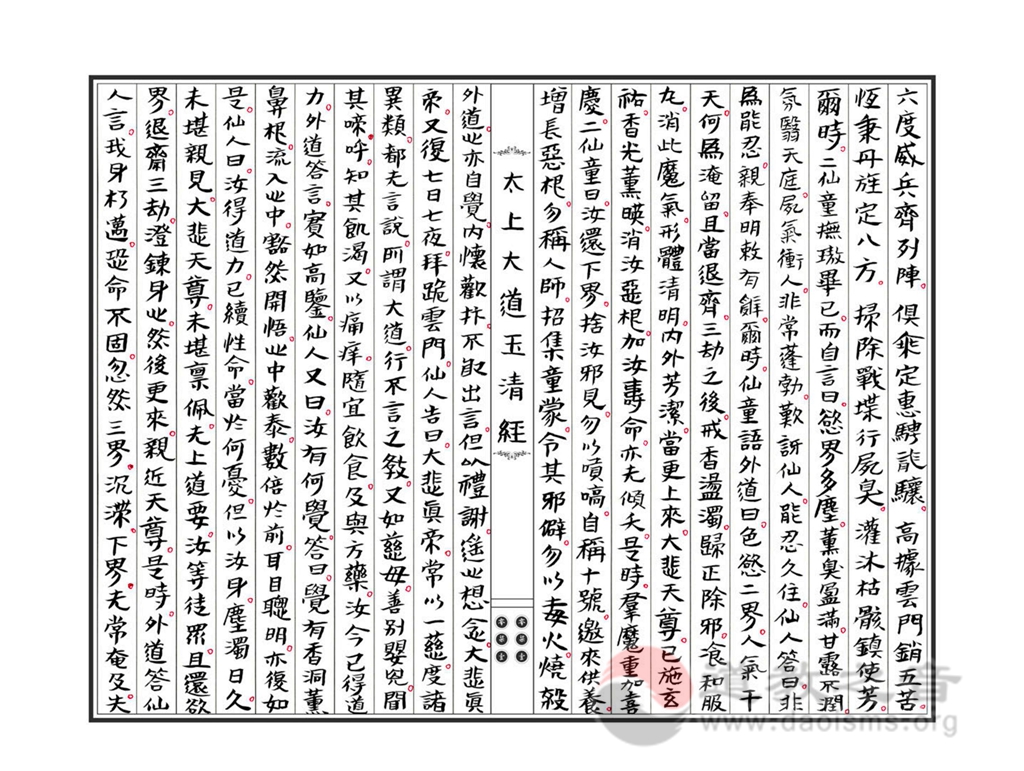 六度威兵齊列陣。俱乘定惠騁龍驤。高據雲門銷五苦。
恆秉丹旌定八方。掃除戰堞行屍臭。灌沐枯骸鎮使芳。
爾時。二仙童撫璈畢已。而自言曰。慾界多塵。薰臭盈滿。甘露不潤。
氛翳天庭。屍氣衝人。非常蓬勃。歎訝仙人。能忍久住。仙人答曰。非
爲能忍。親奉明敕。有緣。爾時。仙童語外道曰。色慾二界。人氣干
天。何爲淹留。且當退齊。三劫之後。戒香盪濁。歸正除邪。飡和服
丸。消此魔氣。形體清明。內外芳潔。當更上來。大悲天尊。已施玄
祐。香光薰暎。消汝惡根。加汝壽命。亦无傾夭。是時。羣魔重加喜
慶。二仙童曰。汝還下界。捨汝邪見。勿以嘖嗃。自稱十號。邀來供養。
增長惡根。勿稱人師。招集童蒙。令其邪僻。勿以毒火。燒殺
太上大道玉清經
外道心亦自覺。內懷歡抃。不敢出言。但以禮謝。遙心想念。大悲眞
帝。又復七日七夜。拜跪雲門。仙人告曰。大悲眞帝。常以一慈。度諸
異類。都无言說。所謂大道。行不言之教。又如慈母。善別嬰兒。聞
其啼呼。知其飢渴。又以痛痒。隨宜飲食。及與方藥。汝今已得道
力。外道答言。實如高鑒。仙人又曰。汝有何覺。答曰。覺有香洞薰
鼻根。流入心中。豁然開悟。心中歡泰。數倍於前。耳目聰明。亦復如
是。仙人曰。汝得道力。已續性命。當於何憂。但以汝身塵濁日久。
未堪親見。大悲天尊。未堪稟佩。无上道要。汝等徒眾。且還欲
界。退齋三劫。澄鍊身心。然後更來。親近天尊。是時。外道答仙
人言。我身朽邁。恐命不固。忽然三界。沉滯。下界无常。奄及夫
道教之音
www.daoisms.org